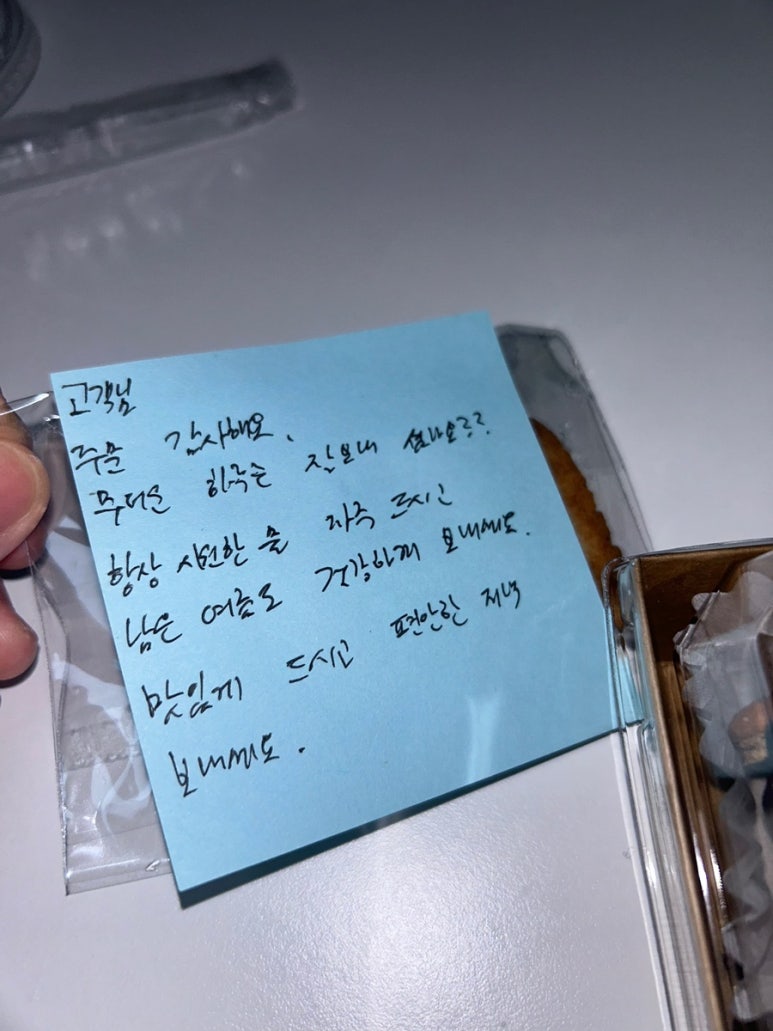 고객님
주문 감사해요.
무더운 하루는 잘보내 셨나요??
항상 시원한 물 자주 드시고
남은 여름도 건강하게 보내세요.
맛있게 드시고 편안한 저녁
보내세요.